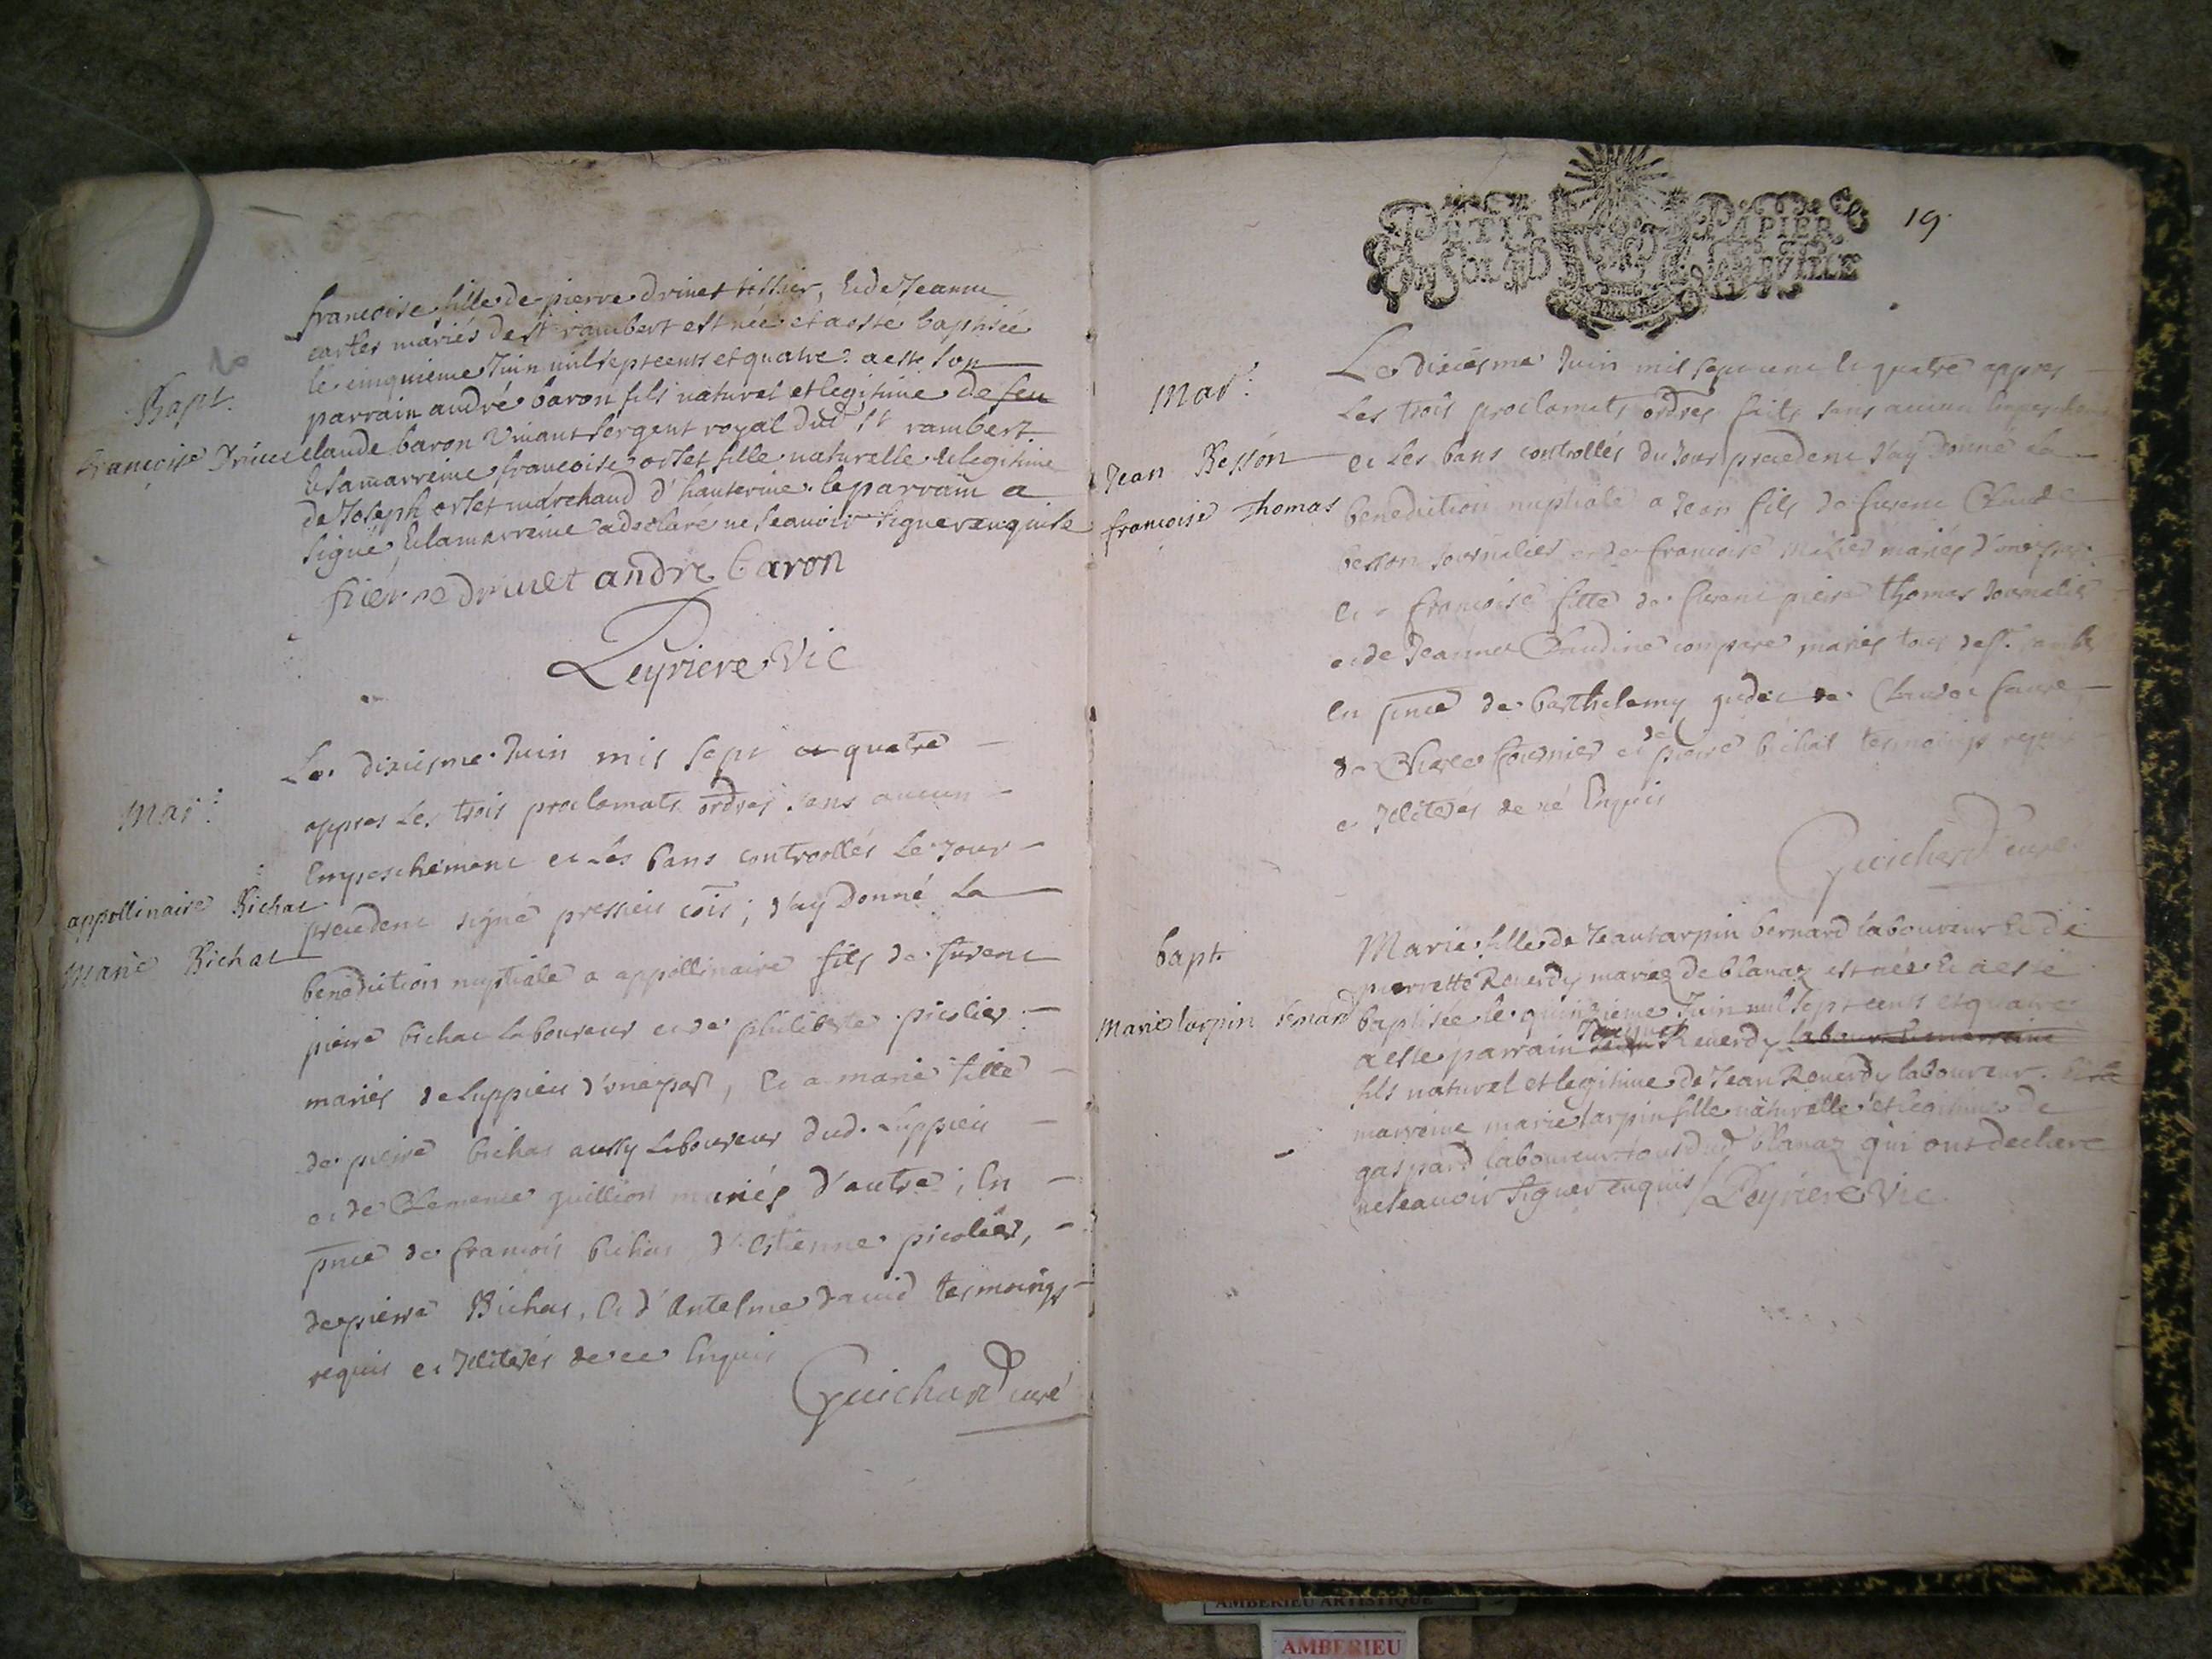 Bapt.
françoise Druet
francoise fille de pierre druet tissier, & de Jeanne
cartier mariés de st rambert est née et a esté baptisée
le cinquieme Juin mil sept cents et quatre a esté son
parrain andré baron fils natural et legitime de feu
claude baron vivant sergent royal dud st rambert
& sa marreine francoise ortet fille naturelle & legitime
de Joseph ortet marchand d'hauterive. le parrain a
signé, & la marreine a declaré ne scavoir signer enquise
pierre druet andre baron
Leyriere Vic
Mar:
appollinaire Bichat
Marie Bichat
Le dixiesme Juin mil sept et quatre
appres les trois proclamats ordres sans aucun
Empeschement et les bans controollés le jour
precedent signé pressieu cois; J'ay Donné La
benediction nuptiale a appollinaire fils de furent
pierre bichat laboureur et de philiberte picolier
mariés de Luppieu d'une part, Et a marie fille
de pierre bichat aussy laboureur dud. Luppieu
et de Clemence guillion mariés d'autre; En
pnce de francois bichat, d'Estienne picolier,
de pierre Bichat, Et d'Antelme david tesmoings
requis et Illiterés de ce Enquis
Guichard curé
PETIT PAPIER
19.
Mar:
Jean Besson
francoise Thomas
Le dixiesme Juin mil sept cent et quatre appres
Les trois proclamats ordres faits sans aucun Empeschemt
et Les bans controllés du Jour precedent J'ay Donné La
benediction nuptiale a Jean fils de furent Claude
besson Journalier et de francoise mariés d'une part
Et a francoise fille de furent pierre thomas Journalier
et de Jeanne Claudine compare mariés tous de st. rambt
En pnce de barthelemy de Claude faure
de Charles fournier et de pierre bichat tesmoings requis
et Illiterés de ce Enquis
Guichard curé
bapt
Marie tarpin bernard
Marie fille de Jean tarpin bernard laboureur & de
pierrette Reverdy mariez de blanaz est née & a esté
baptisée le quinzieme Juin mil sept cents et quatre
a esté parrain Reverdy
fils natural et legitime de Jean Reverdy laboureur. & la
marreine marie tarpin fille naturelle et legitime de
gaspard laboureur tous dud blanaz qui ont declare
ne scavoir signer enquis Leyriere Vic.
AMBERIEU ARTISTIQUE
AMBERIEU